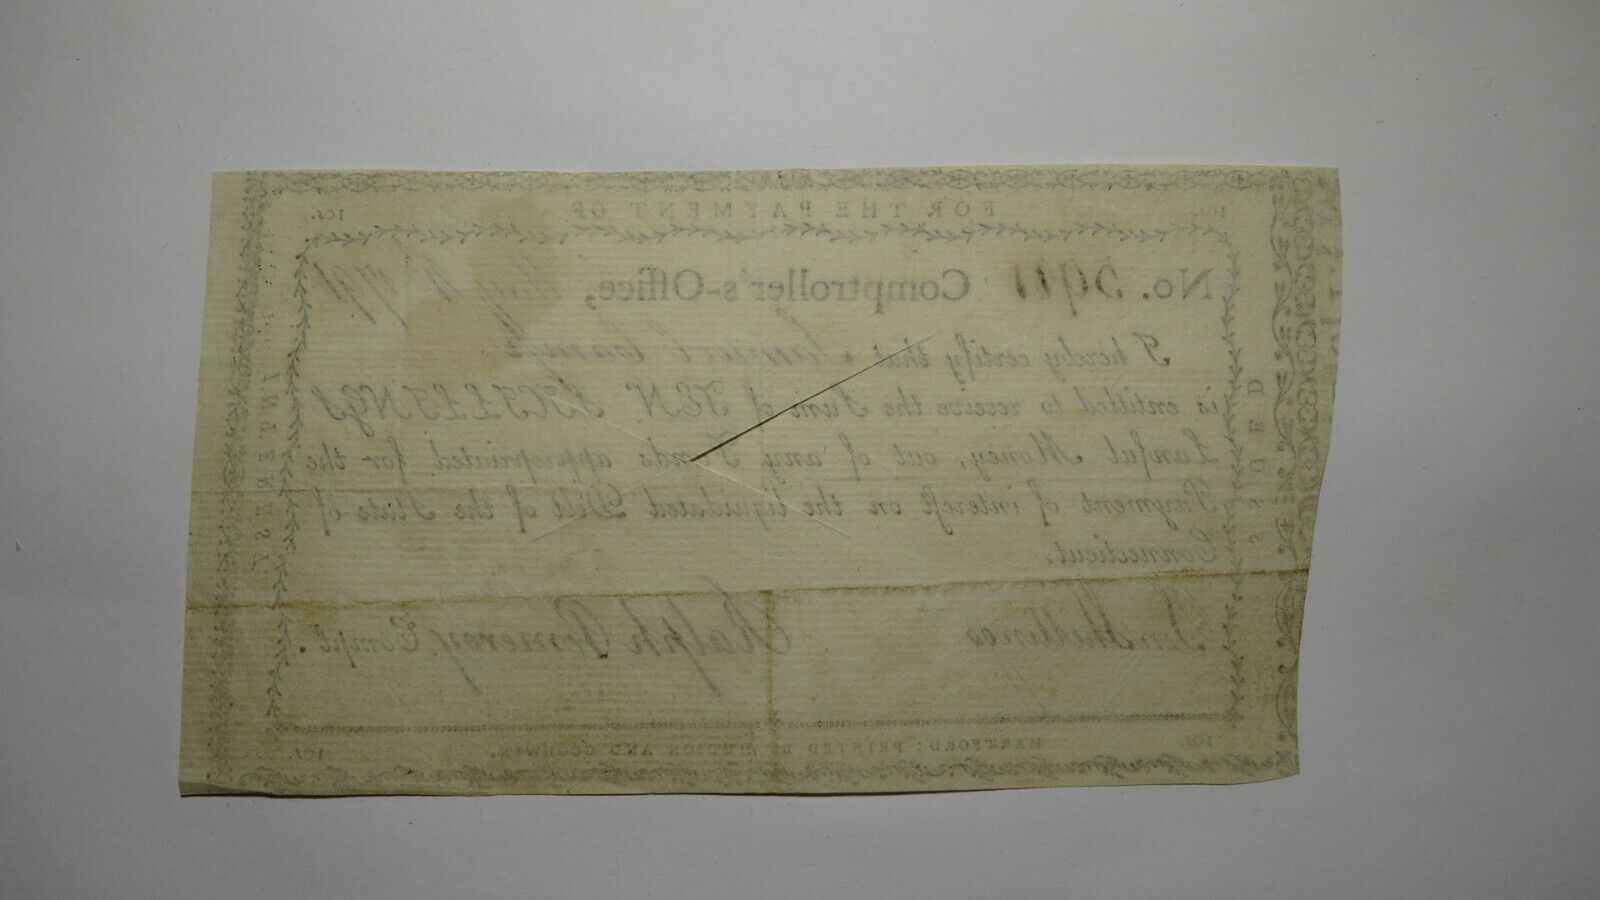 FOR THE PAYMENT OF
10s. 10s.
No. 5911 Comptroller's-Office, May 1791
I hereby certify that
is entitled to receive the Sum of TEN SHILLINGS
Lawful Money, out of any Funds appropriated for the
Payment of interest on the liquidated Debt of the State of
Connecticut.
Ten Shillings Ralph Pomeroy Compt.
ISSUED
INTEREST
10s. 10s.
HARTFORD: PRINTED BY HUDSON AND GOODWIN.